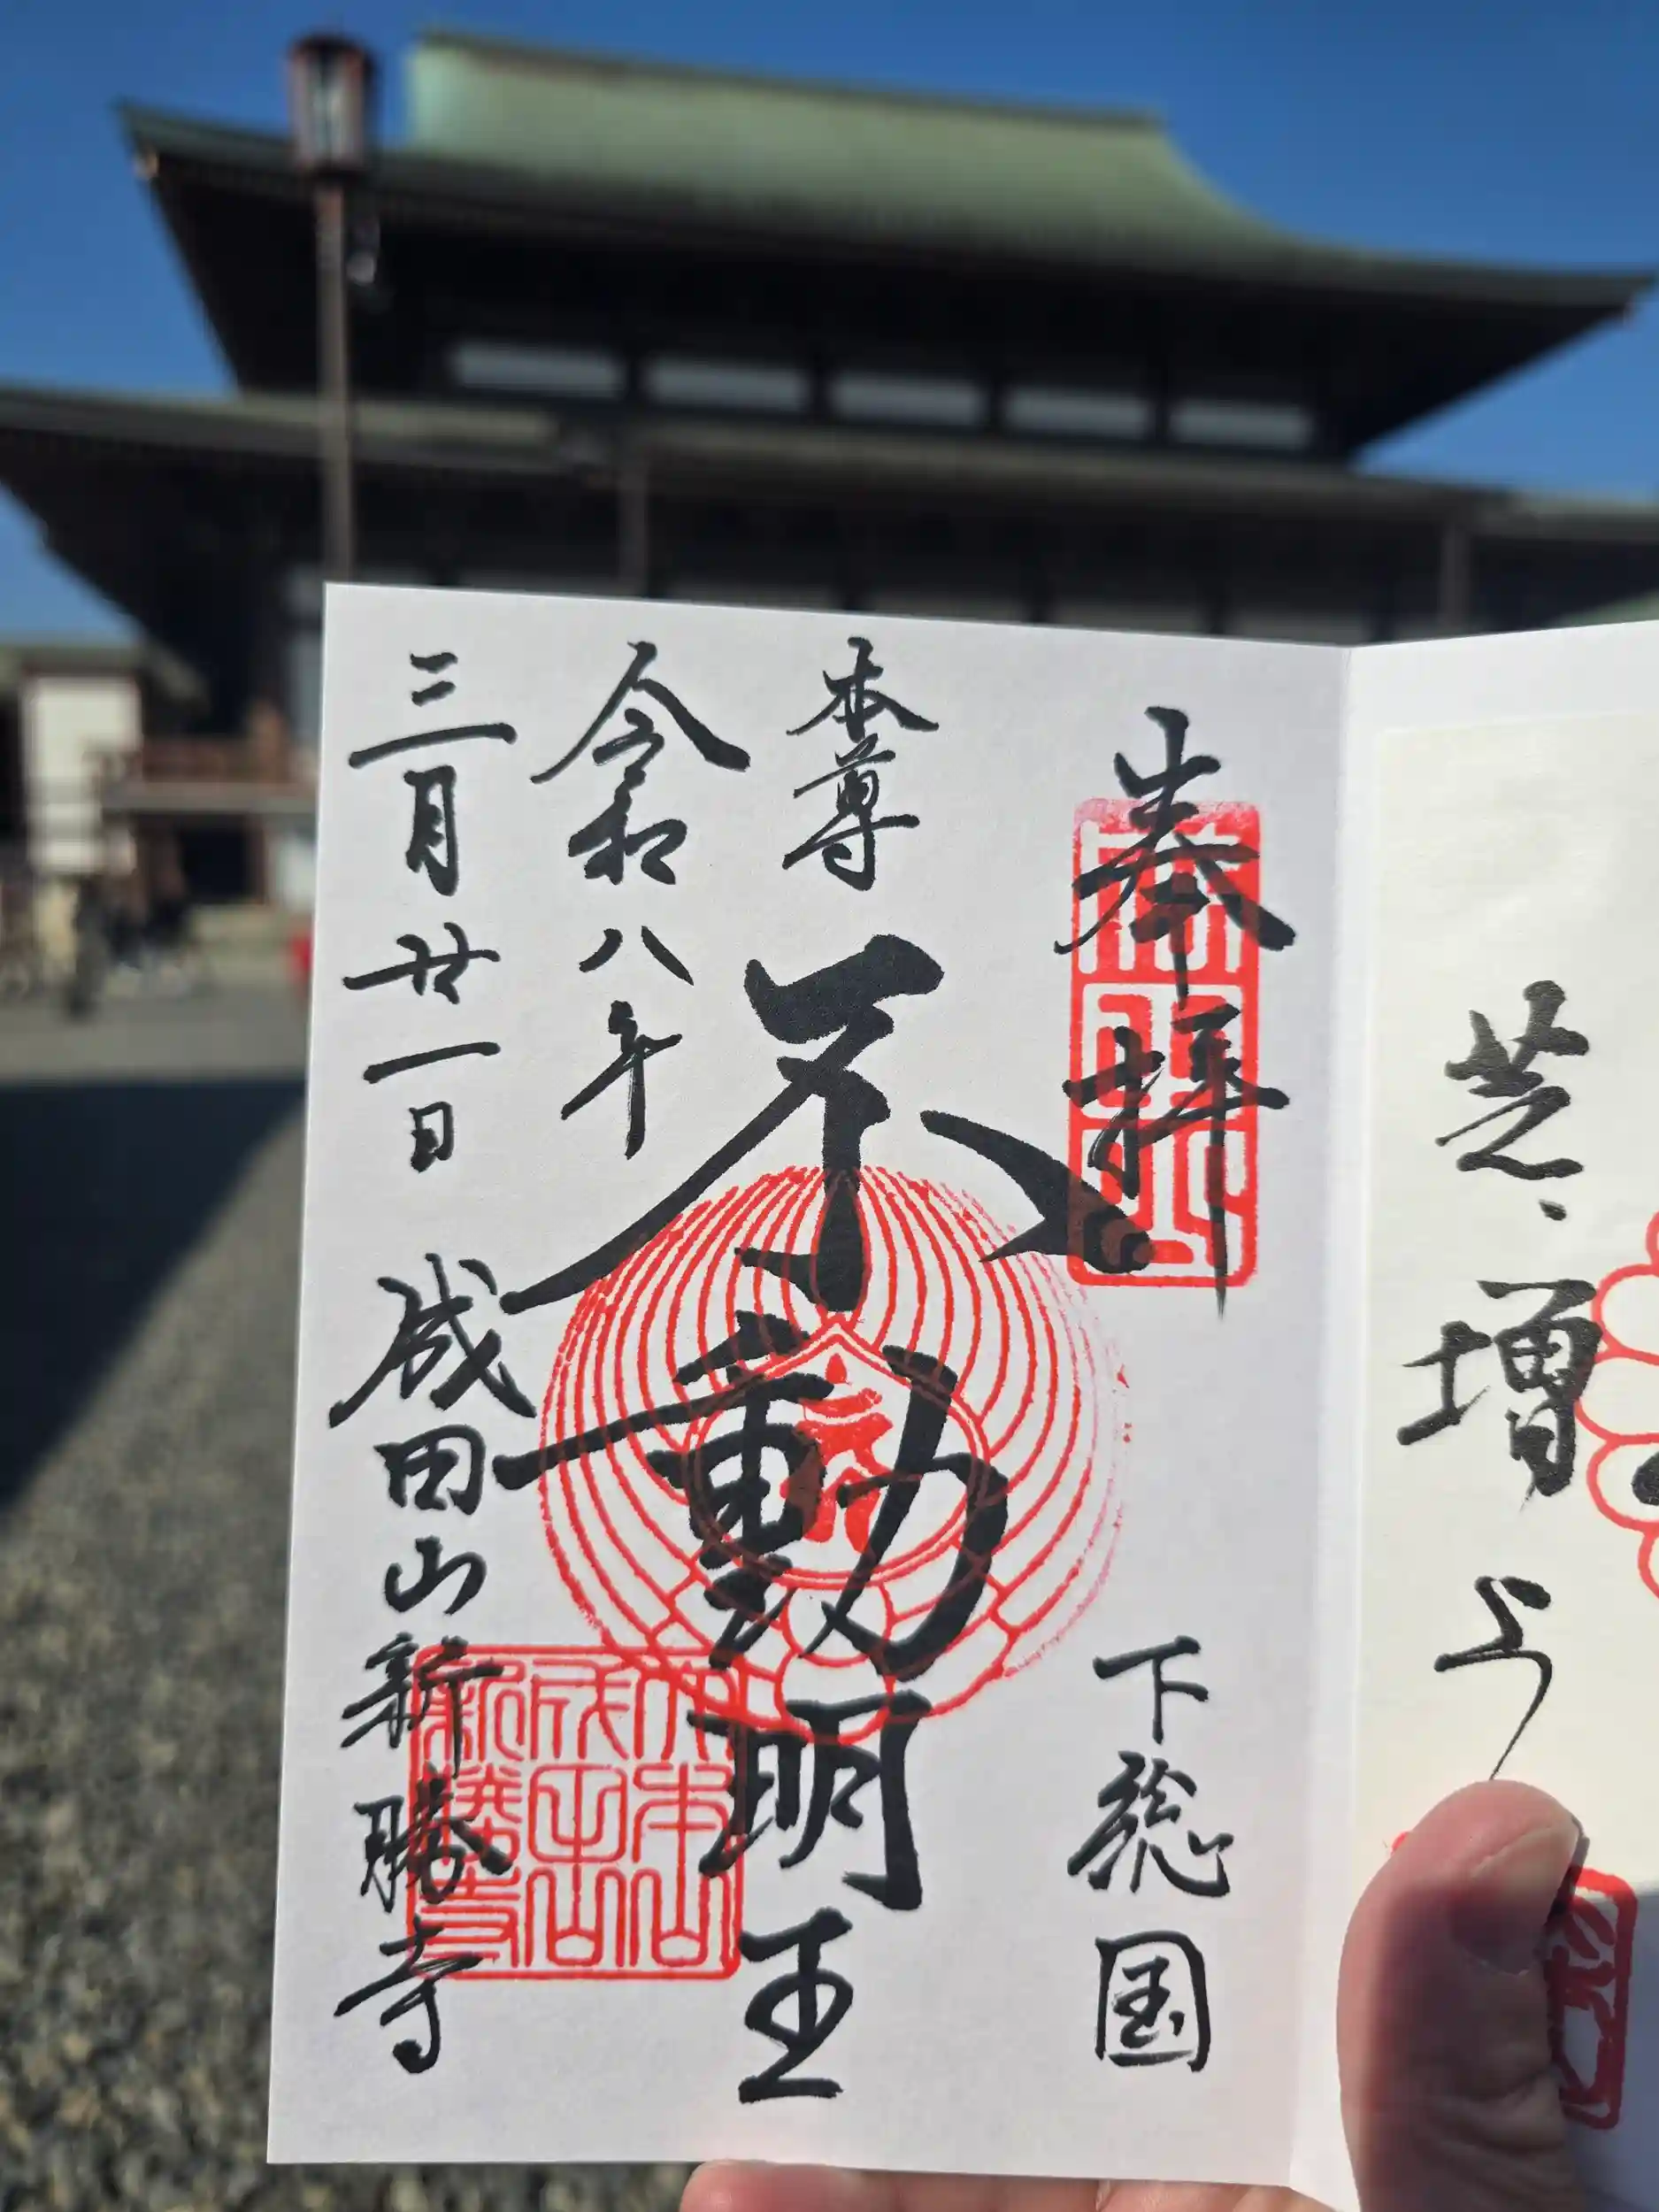 芝、増上
奉拝
下総国
本尊
不動明王
令和八年
三月廿一日
成田山新勝寺
大本山
成田山
新勝寺